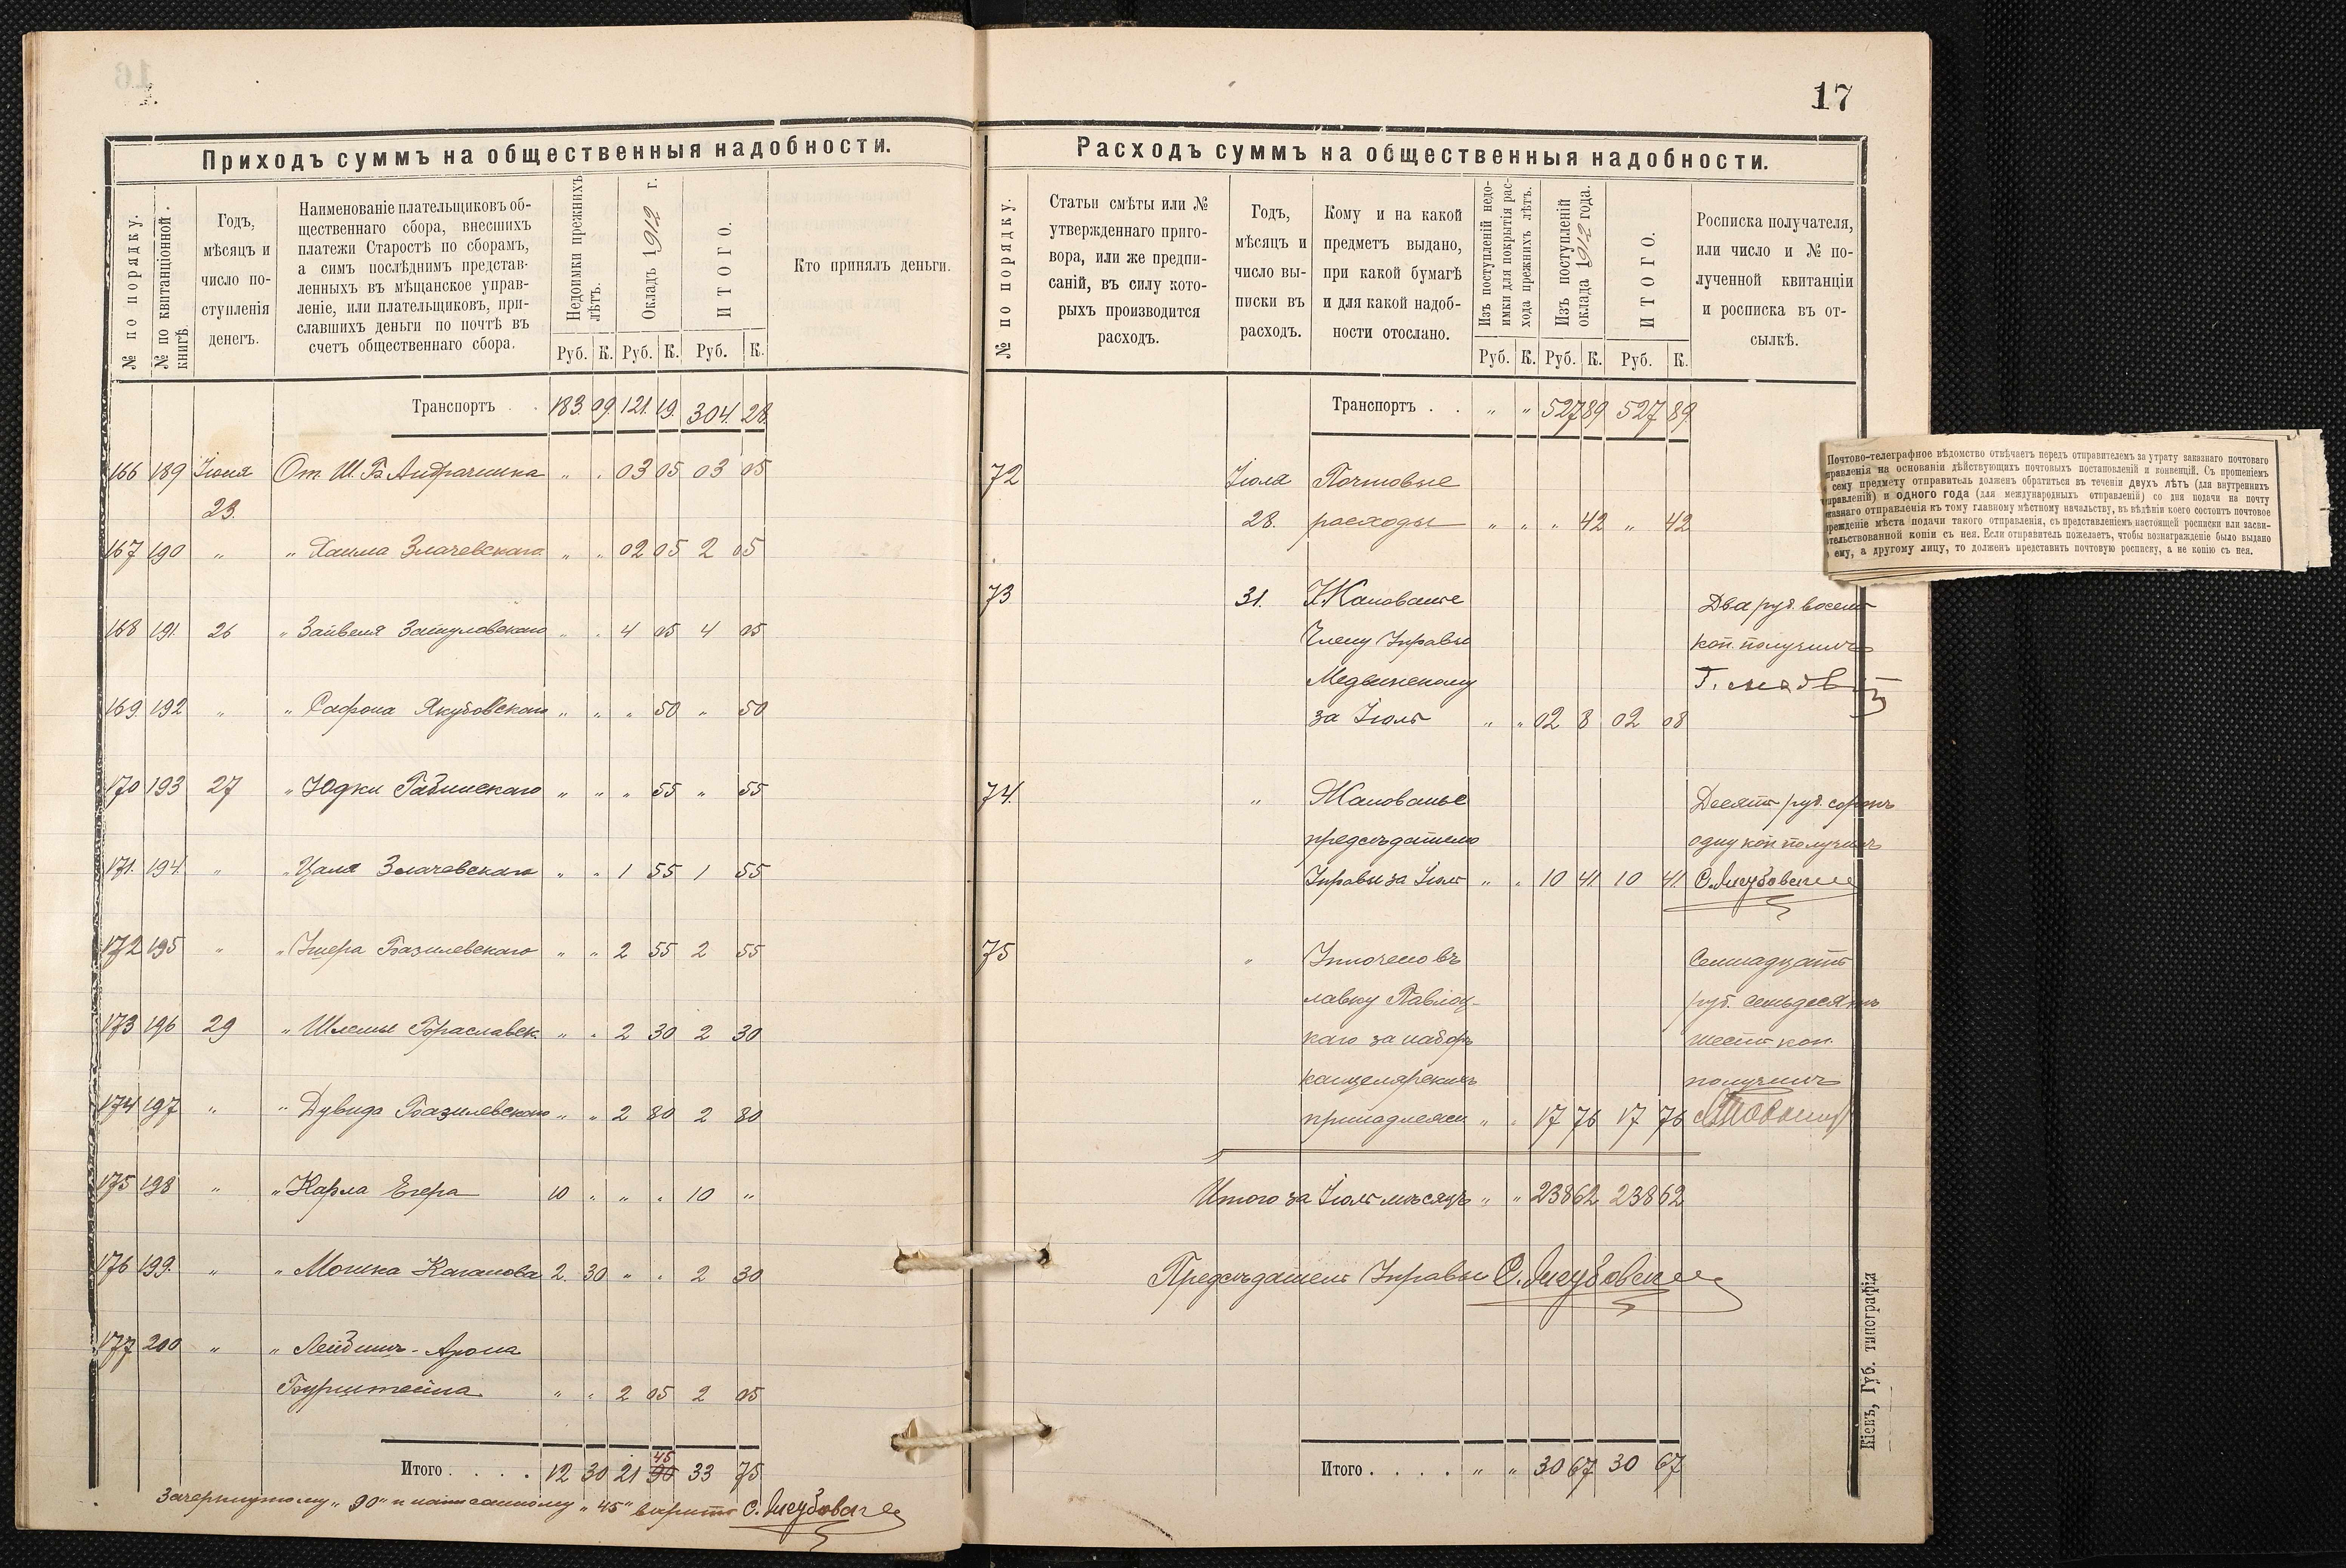 Приходъ суммъ на общественныя надобности.
№ по порядку.
№ по квитанціонной книгѣ.
Годъ,
мѣсяцъ и
число по-
ступленія
денегъ.
Наименованіе плательщиковъ об-
щественнаго сбора, внесшихъ
платежи Старостѣ по сборамъ,
а симъ послѣднимъ представ-
ленныхъ въ мѣщанское управ-
леніе, или плательщиковъ, при-
славшихъ деньги по почтѣ въ
счетъ общественнаго сбора.
Недоимки прежнихъ
лѣтъ.
Окладъ 1912 г.
ИТОГО.
Кто принялъ деньги.
Руб. К. Руб. К. Руб. К.
Транспортъ . . 183. 09. 121. 19. 304. 28.
166 189 Іюля От Ш. Б. " . 03 05 03 05
23.
167 190 " " Хаима Злачевскаго " " 02 05 2 05
168 191. 26 " Зайвеля " . 4 05 4 05
169. 192 " " Сафона Якубовскаго " " " 50 " 50
170 193 27 " Юдки Рабинскаго " " " 55 " 55
171. 194. " " Цаля Злачевскаго " " 1 55 1 55
172 195 " " Ушера Базилевскаго " " 2 55 2 55
173 196 29 " Шлемы Бораславск. " " 2 30 2 30
174 197 " " Дувида Базилевскаго " " 2 80 2 80
175 198 " " Карла Егера 10 " " " 10 "
176 199. " " Мошка Каганова 2. 30 " " 2 30
177 200 " " Лейбишъ-Арона
Бурштейна " " 2 05 2 05
45
Итого . . . . 12 30 21 90 33 75
Зачеркнутому "90" и написанному "45" вѣрить С. Якубовскій
17
Расходъ суммъ на общественныя надобности.
№ по порядку.
Статьи смѣты или №
утвержденнаго приго-
вора, или же предпи-
саній, въ силу кото-
рыхъ производится
расходъ.
Годъ,
мѣсяцъ и
число вы-
писки въ
расходъ.
Кому и на какой
предметъ выдано,
при какой бумагѣ
и для какой надоб-
ности отослано.
Изъ поступленій недо-
имки для покрытія рас-
хода прежнихъ лѣтъ.
Изъ поступленій
оклада 1912 года.
ИТОГО.
Росписка получателя,
или число и № по-
лученной квитанціи
и росписка въ от-
сылкѣ.
Руб. К. Руб. К. Руб. К.
Транспортъ . . " " 527 89 527 89
72 Іюля Почтовые
28. расходы " " " 42 " 42
73 31. Жалованіе Два руб. восемь
Члену Управы коп. получилъ
Медвинскому
за Іюль " " 02 8 02 08
74. " Жалованье Десять руб. сорокъ
предсѣдателю одну коп получилъ
Управы за Іюль " " 10 41 10 41 С. Якубовскій
75 " Уплочено въ Семнадцать
лавку Павлоц- руб. семьдесятъ
каго за наборъ шесть коп.
канцелярскихъ получилъ
принадлежн. " " 17 76 17 76
Итого за Іюль мѣсяцъ " " 238 62 238 62
Предсѣдатель Управы С. Якубовскій
Итого . . . . " " 30 67 30 67
Кіевъ, Губ. типографія
Почтово-телеграфное вѣдомство отвѣчаетъ передъ отправителемъ за утрату заказнаго почтоваго
правленія на основаніи дѣйствующихъ почтовыхъ постановленій и конвенцій. Съ прошеніемъ
сему предмету отправитель долженъ обратиться въ теченіи двухъ лѣтъ (для внутреннихъ
правленій) и одного года (для международныхъ отправленій) со дня подачи на почту
казнаго отправленія къ тому главному мѣстному начальству, въ вѣдѣніи коего состоитъ почтовое
реждеиіе мѣста подачи такого отправленія, съ представленіемъ настоящей росписки или засви-
тельствованной копіи съ нея. Если отправитель пожелаетъ, чтобы вознагражденіе было выдано
ему, а другому лицу, то долженъ представить почтовую росписку, а не копію съ нея.